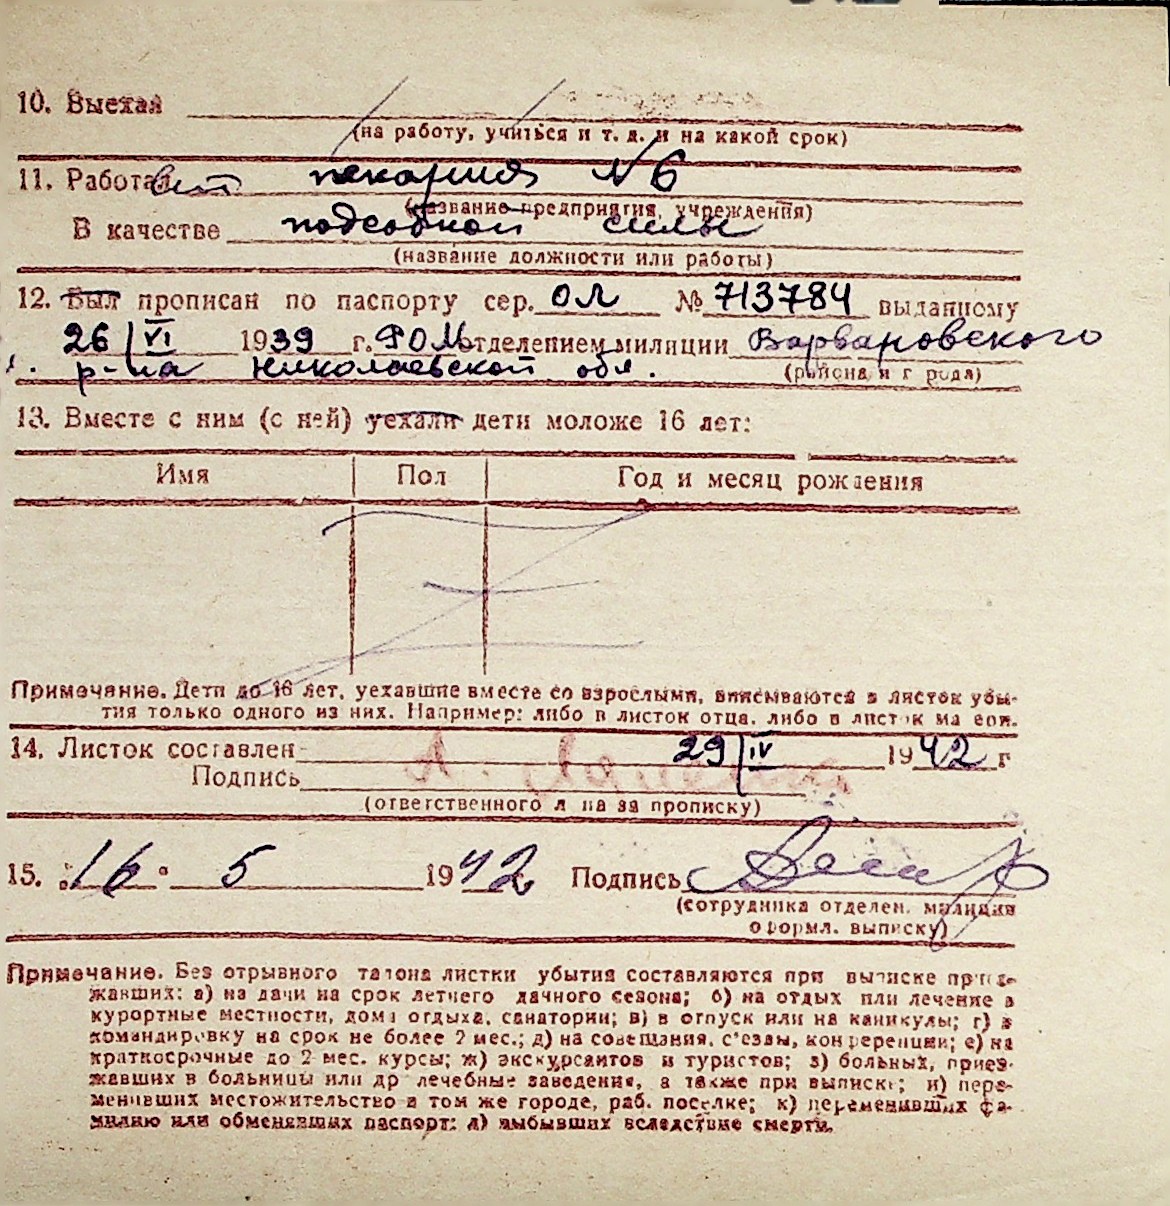 10. Выехал
(на работу, учиться и т. д. и на какой срок)
11. Работает пекарня №6
(название предприятия, учреждения)
В качестве подсобной силы
(название должности или работы)
12. Был прописан по паспорту сер. ОЛ № 713784 выданному
26/VI 1939 г. РОМ отделением милиции Варваровского
р-на Николаевской обл.
(района и города)
13. Вместе с ним (с ней) уехали дети моложе 16 лет:
Имя Пол Год и месяц рождения
Примечание. Дети до 16 лет, уехавшие вместе со взрослыми, вписываются в листок убы-
тия только одного из них. Например: либо в листок отца, либо в листок матери.
14. Листок составлен 29/IV 1942 г
Подпись
(ответственного лица за прописку)
15. "16" 5 1942 Подпись
(сотрудника отделен. милиции
оформл. выписку)
Примечание. Без отрывного талона листки убытия составляются при выписке приез-
жавших: а) на дачи на срок летнего дачного сезона; б) на отдых или лечение в
курортные местности, дома отдыха, санатории; в) в отпуск или на каникулы; г) в
командировку на срок не более 2 мес.; д) на совещания, с'езды, конференции; е) на
краткосрочные до 2 мес. курсы; ж) экскурсантов и туристов; з) больных, приез-
жавших в больницы или др лечебные заведения, а также при выписке; и) пере-
менивших местожительство в том же городе, раб. поселке; к) переменивших фа-
милию или обменявших паспорт; л) выбывших вследствие смерти.